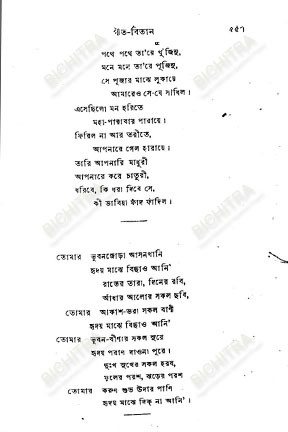 গীত-বিতান ৫৫৭
পথে পথে তা'রে খুঁজিনু,
মনে মনে তা'রে পূজিনু,
সে পূজার মাঝে লুকায়ে
আমারেও সে-যে সাধিল।
এসেছিলো মন হরিতে
মহা-পারাবার পারায়ে।
ফিরিল না আর তরীতে,
আপনারে গেল হারায়ে।
তারি আপনারি মাধুরী
আপনারে করে চাতুরী,
ধরিবে, কি ধরা দিবে সে,
কী ভাবিয়া ফাঁদ ফাঁদিল।
তোমার ভুবনজোড়া আসনখানি
হৃদয় মাঝে বিছাও আনি'
রাতের তারা, দিনের রবি,
আঁধার আলোর সকল ছবি,
তোমার আকাশ-ভরা সকল বাণী
হৃদয় মাঝে বিছাও আনি'
তোমার ভুবন-বীণার সকল সুরে
হৃদয় পরাণ দাওনা পূরে।
দুঃখ সুখের সকল হরষ,
ফুলের পরশ, ঝড়ের পরশ
তোমার করুণ শুভ উদার পাণি
হৃদয় মাঝে দিক্ না আনি'।
BICHITRA
BICHITRA
BICHITRA
BICHITRA
BICHITRA
BICHITRA